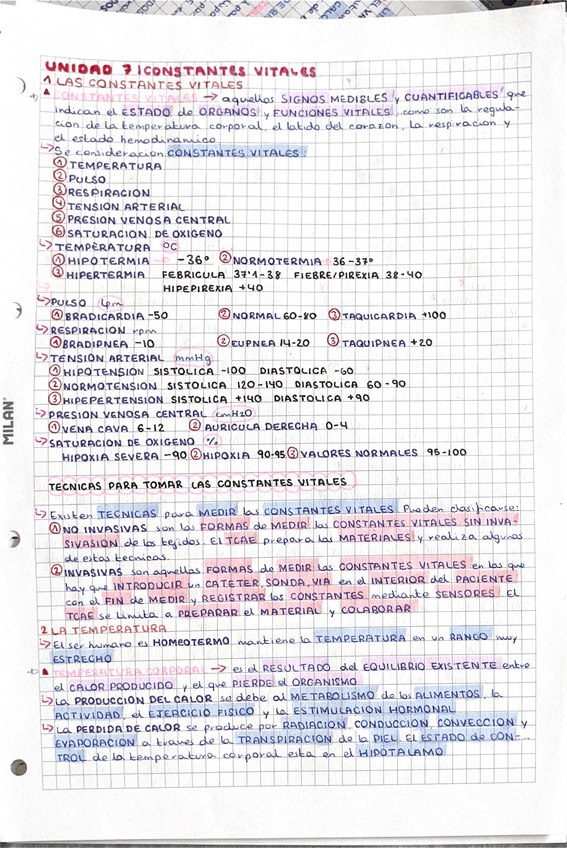 UNIDAD 7 | CONSTANTES VITALES
1 LAS CONSTANTES VITALES
CONSTANTES VITALES → aquellos SIGNOS MEDIBLES y CUANTIFICABLES que
indican el ESTADO de ORGANOS y FUNCIONES VITALES, como son la regula-
cion de la temperatura corporal, el latido del corazon, la respiracion y
el estado hemodinamico
↳ Se consideracion CONSTANTES VITALES:
① TEMPERATURA
② PULSO
③ RESPIRACION
④ TENSION ARTERIAL
⑤ PRESION VENOSA CENTRAL
⑥ SATURACION DE OXIGENO
↳ TEMPERATURA ºC
① HIPOTERMIA -36º ② NORMOTERMIA 36-37º
③ HIPERTERMIA FEBRICULA 37'1-38 FIEBRE/PIREXIA 38-40
HIPEPIREXIA +40
↳ PULSO lpm
① BRADICARDIA -50 ② NORMAL 60-80 ③ TAQUICARDIA +100
↳ RESPIRACION rpm
① BRADIPNEA -10 ② EUPNEA 14-20 ③ TAQUIPNEA +20
↳ TENSION ARTERIAL mmHg
① HIPOTENSION SISTOLICA -100 DIASTOLICA -60
② NORMOTENSION SISTOLICA 120-140 DIASTOLICA 60-90
③ HIPEPERTENSION SISTOLICA +140 DIASTOLICA +90
↳ PRESION VENOSA CENTRAL cmH2O
① VENA CAVA 6-12 ② AURICULA DERECHA 0-4
↳ SATURACION DE OXIGENO %
HIPOXIA SEVERA -90 ② HIPOXIA 90-95 ③ VALORES NORMALES 95-100
TECNICAS PARA TOMAR LAS CONSTANTES VITALES
↳ Existen TECNICAS para MEDIR las CONSTANTES VITALES. Pueden clasificarse:
① NO INVASIVAS son las FORMAS de MEDIR las CONSTANTES VITALES SIN INVA-
SIVASION de los tejidos. El TCAE prepara los MATERIALES y realiza algunos
de estas tecnicas.
② INVASIVAS son aquellas FORMAS de MEDIR LAS CONSTANTES VITALES en las que
hay que INTRODUCIR un CATETER, SONDA, VIA en el INTERIOR del PACIENTE
con el FIN de MEDIR y REGISTRAR las CONSTANTES mediante SENSORES. El
TCAE se limita a PREPARAR el MATERIAL y COLABORAR
2 LA TEMPERATURA
↳ El ser humano es HOMEOTERMO mantiene la TEMPERATURA en un RANGO muy
ESTRECHO
TEMPERATURA CORPORAL → es el RESULTADO del EQUILIBRIO EXISTENTE entre
el CALOR PRODUCIDO y el que PIERDE el ORGANISMO
↳ La PRODUCCION DEL CALOR se debe al METABOLISMO de los ALIMENTOS, la
ACTIVIDAD, el EJERCICIO FISICO y la ESTIMULACION HORMONAL
↳ La PERDIDA DE CALOR se produce por RADIACION, CONDUCCION, CONVECCION y
EVAPORACION a traves de la TRANSPIRACION de la PIEL. El ESTADO de CON-
TROL de la temperatura corporal esta en el HIPOTALAMO
MILAN